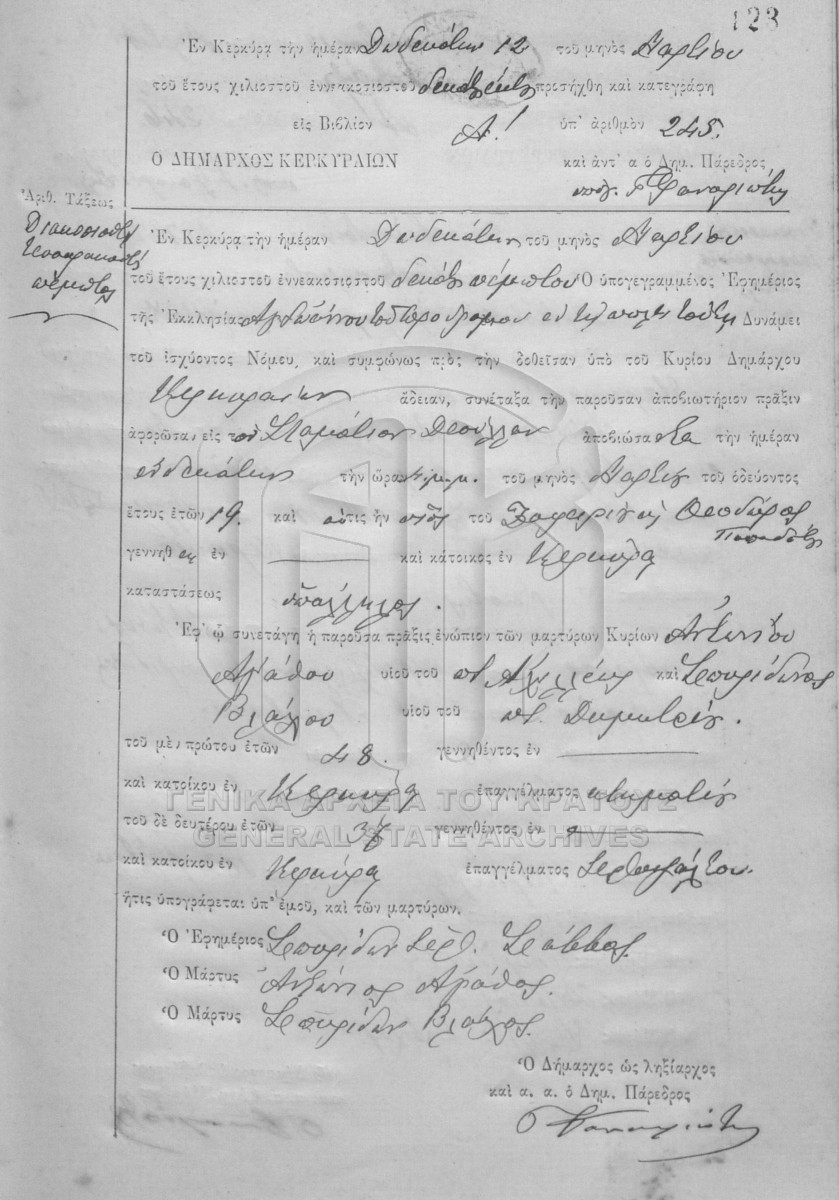 123
Ἐν Κερκύρᾳ τὴν ἡμέραν Δωδεκάτην 12 τοῦ μηνὸς Μαρτίου
τοῦ ἔτους χιλιοστοῦ ἐννεακοσιοστοῦ προσήχθη καὶ κατεγράφη
εἰς Βιβλίον Α! ὑπ' ἀριθμὸν 245.
Ο ΔΗΜΑΡΧΟΣ ΚΕΡΚΥΡΑΙΩΝ καὶ ἀντ' α ὁ Δημ. Πάρεδρος
Φαναριώτης
Ἀριθ. Τάξεως
Διακοσιοστὸς
τεσσαρακοστὸς
πέμπτος
Ἐν Κερκύρᾳ τὴν ἡμέραν Δωδεκάτην τοῦ μηνὸς Μαρτίου
τοῦ ἔτους χιλιοστοῦ ἐννεακοσιοστοῦ δεκάτου πέμπτου Ὁ ὑπογεγραμμένος Ἐφημέριος
τῆς Ἐκκλησίας Αγ Ιωάννου του Προδρόμου ἐν τῇ πόλει ταύτῃ Δυνάμει
τοῦ ἰσχύοντος Νόμου, καὶ συμφώνως πρὸς τὴν δοθεῖσαν ὑπὸ τοῦ Κυρίου Δημάρχου
Κερκυραίων ἄδειαν, συνέταξα τὴν παροῦσαν ἀποβιωτήριον πρᾶξιν
ἀφορῶσαν εἰς τὸν Σταμάτιον ἀποβιώσαντα τὴν ἡμέραν
ἑνδεκάτην τὴν ὥραν 4 μ.μ. τοῦ μηνὸς Μαρτίου τοῦ ὁδεύοντος
ἔτους ἐτῶν 19. καὶ ὅστις ἦν υἱὸς τοῦ Ζαφειρίου καὶ Θεοδώρας
γεννηθ ἐν — καὶ κάτοικος ἐν Κερκύρᾳ
καταστάσεως ὑπάλληλος.
Ἐφ' ᾧ συνετάγη ἡ παροῦσα πρᾶξις ἐνώπιον τῶν μαρτύρων Κυρίων Ἀντωνίου
Αγάθου υἱοῦ τοῦ π. Αχιλλέως καὶ Σπυρίδωνος
Βλάχου υἱοῦ τοῦ π. Δημητρίου.
τοῦ μὲν πρώτου ἐτῶν 48. γεννηθέντος ἐν —
καὶ κατοίκου ἐν Κερκύρᾳ ἐπαγγέλματος κτηματίου
ΓΕΝΙΚΑ ΑΡΧΕΙΑ ΤΟΥ ΚΡΑΤΟΥΣ
τοῦ δὲ δευτέρου ἐτῶν 37 γεννηθέντος ἐν —
GENERAL STATE ARCHIVES
καὶ κατοίκου ἐν Κερκύρᾳ ἐπαγγέλματος
ἥτις ὑπογράφεται ὑπ' ἐμοῦ, καὶ τῶν μαρτύρων.
Ὁ Ἐφημέριος Σπυρίδων Ιερ.
Ὁ Μάρτυς Ἀντώνιος Αγάθος.
Ὁ Μάρτυς Σπυρίδων Βλάχος.
Ὁ Δήμαρχος ὡς ληξίαρχος
καὶ α. α. ὁ Δημ. Πάρεδρος
Φαναριώτης